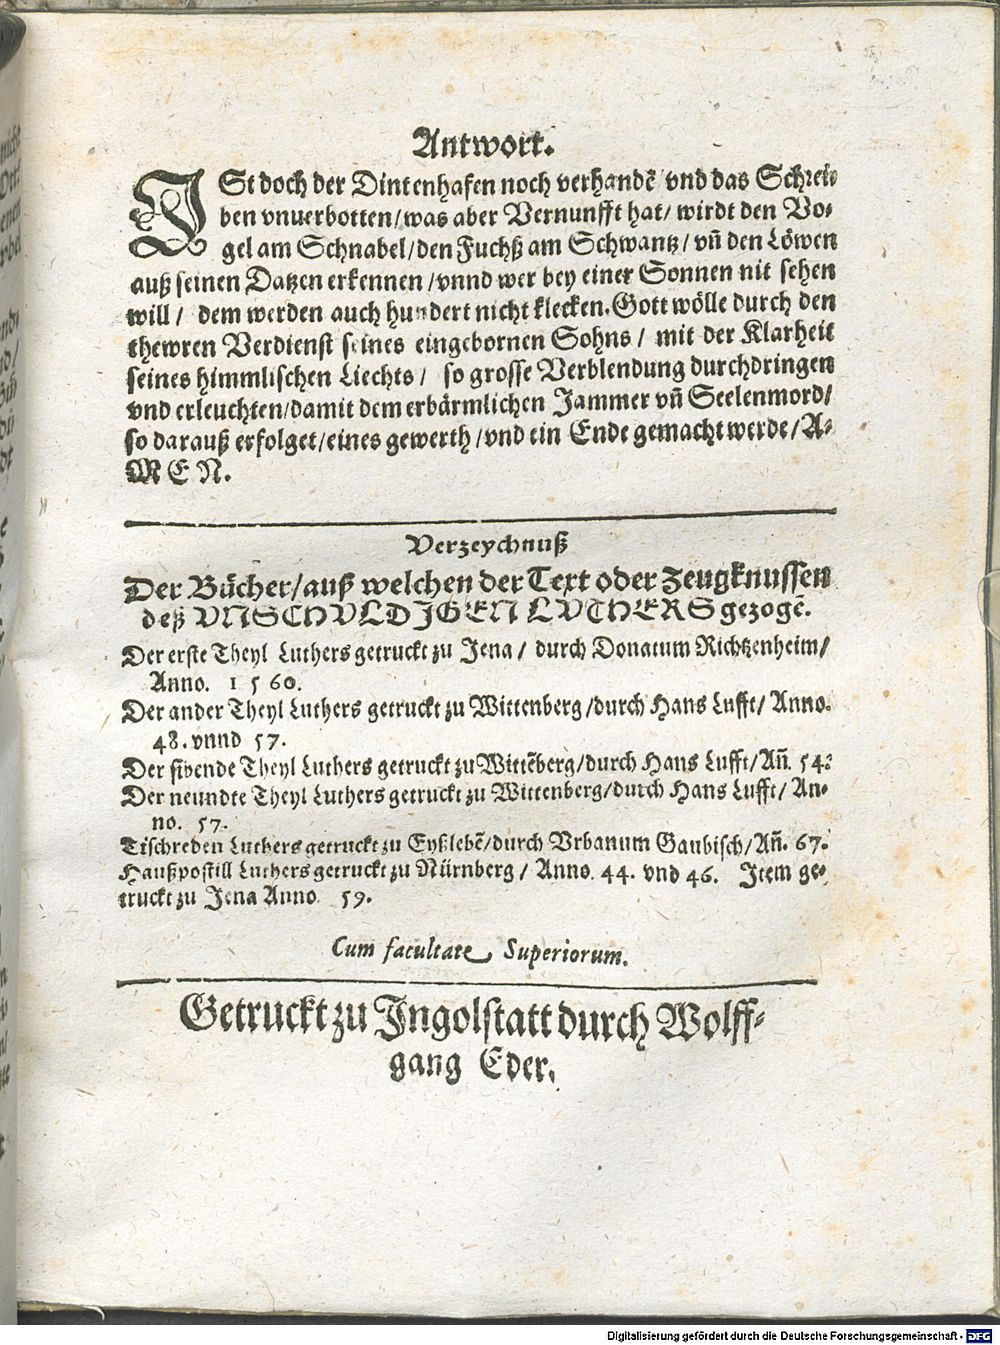 Antwort.
ISt doch der Dintenhafen noch verhandẽ vnd das Schrei-
ben vnuerbotten/was aber Vernunfft hat/ wirdt den Vo-
gel am Schnabel/den Fuchß am Schwantz/ vñ den Löwen
auß seinen Datzen erkennen /vnnd wer bey einer Sonnen nit sehen
will/ dem werden auch hundert nicht klecken. Gott wölle durch den
thewren Verdienst seines eingebornen Sohns/ mit der Klarheit
seines himmlischen Liechts/ so grosse Verblendung durchdringen
vnd erleuchten/damit dem erbärmlichen Jammer vñ Seelenmord/
so darauß erfolget/eines gewerth/vnd ein Ende gemacht werde/A-
MEN.
Verzeychnuß
Der Bücher/auß welchen der Text oder Zeugknussen
deß VNSCHVLDIGEN LVTHERS gezogẽ.
Der erste Theyl Luthers getruckt zu Jena/ durch Donatum Richtzenheim/
Anno. 1560.
Der ander Theyl Luthers getruckt zu Wittenberg/durch Hans Lufft/ Anno.
48. vnnd 57.
Der sibende Theyl Luthers getruckt zu Wittẽberg/durch Hans Lufft/Añ. 54.
Der neundte Theyl Luthers getruckt zu Wittenberg/durch Hans Lufft/ An-
no. 57.
Tischreden Luthers getruckt zu Eyßlebẽ/durch Vrbanum Gaubisch/Añ. 67.
Haußpostill Luthers getruckt zu Nürnberg/ Anno. 44. vnd 46. Item ge-
truckt zu Jena Anno. 59.
Cum facultate Superiorum.
Getruckt zu Ingolstatt durch Wolff-
gang Eder.
Digitalisierung gefördert durch die Deutsche Forschungsgemeinschaft - DFG